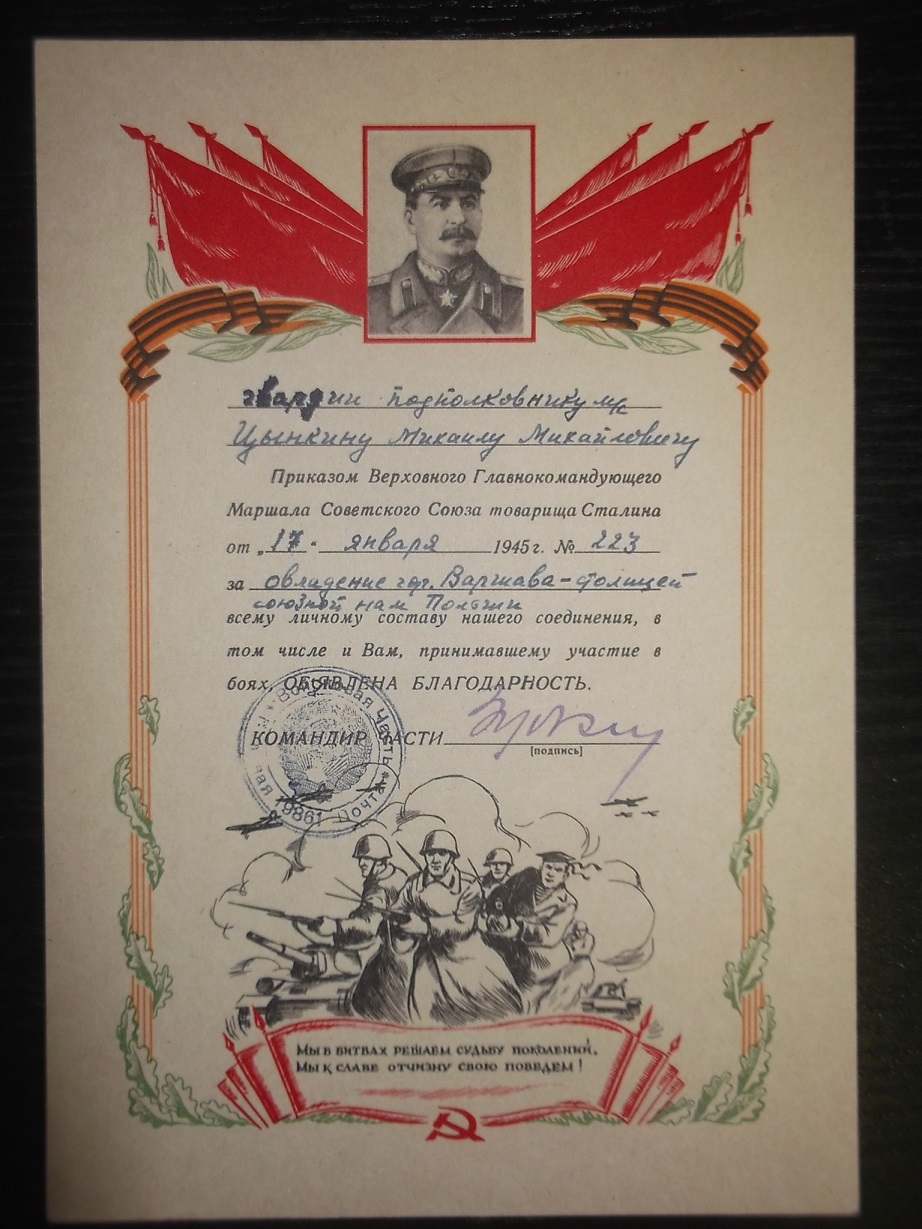 гвардии подполковнику м/с
Цынкину Михаилу Михайловичу
Приказом Верховного Главнокомандующего
Маршала Советского Союза товарища Сталина
от „17“ января 1945 г. № 223
за овладение гор. Варшава – столицей
союзной нам Польши
всему личному составу нашего соединения, в
том числе и Вам, принимавшему участие в
боях, ОБЪЯВЛЕНА БЛАГОДАРНОСТЬ.
КОМАНДИР ЧАСТИ
[подпись]
Войсковая Часть
Полевая Почта
Мы в битвах решаем судьбу поколений,
Мы к славе отчизну свою поведем!